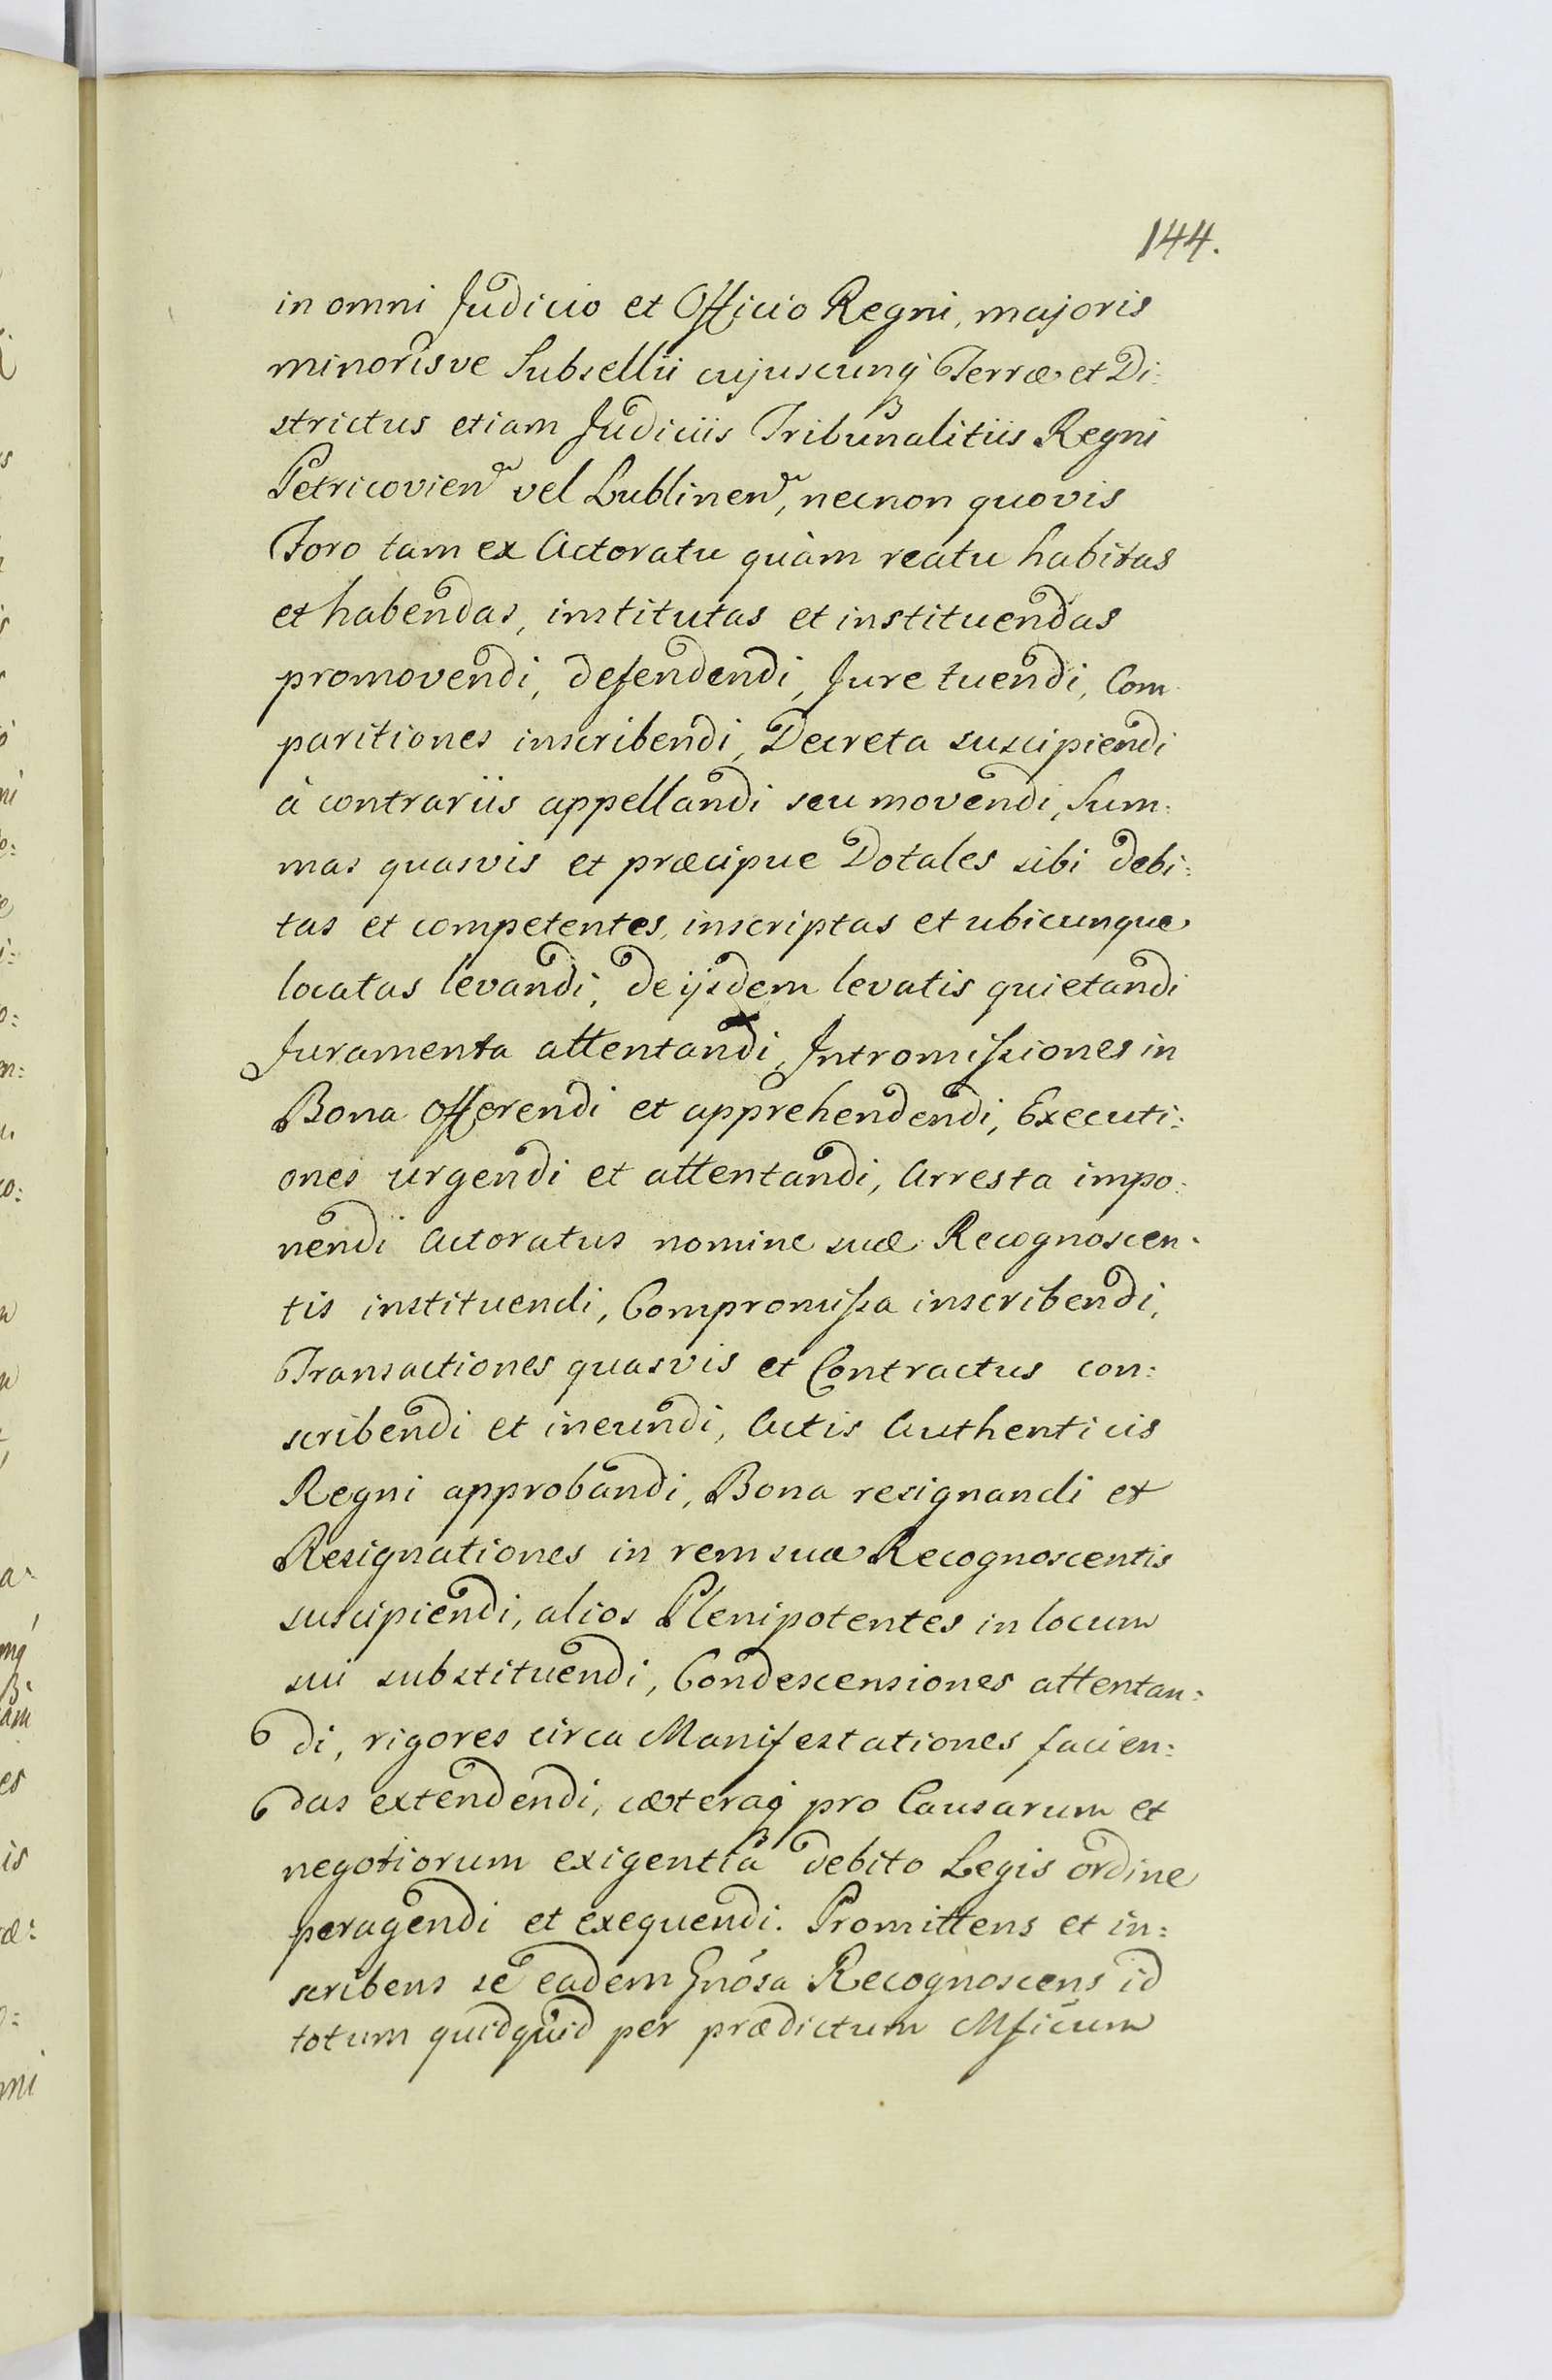 144.
in omni Judicio et Officio Regni, majoris
minorisve Subsellii cujuscunq Terræ et Di:
strictus etiam Judiciis Tribunalitiis Regni
Petricovien vel Lublinen, necnon quovis
Foro tam ex Actoratu quàm reatu habitas
et habendas, institutas et instituendas
promovendi, defendendi, Jure tuendi, Com
paritiones inscribendi, Decreta suscipiendi
à contrariis appellandi seu movendi, Sum:
mas quasvis et præcipue Dotales sibi debi:
tas et competentes, inscriptas et ubicunque
locatas levandi, de ijsdem levatis quietandi
Juramenta attentandi, Intromissiones in
Bona offerendi et apprehendendi, Executi:
ones urgendi et attentandi, Arresta impo:
nendi Actoratus nomine suæ Recognoscen:
tis instituendi, Compromissa inscribendi,
Transactiones quasvis et Contractus con:
scribendi et ineundi, Actis Authenticis
Regni approbandi, Bona resignandi et
Resignationes in rem suæ Recognoscentis
suscipiendi, alios Plenipotentes in locum
sui substituendi, Condescensiones attentan:
di, rigores circa Manifestationes facien:
das extendendi, cæteraq pro Causarum et
negotiorum exigentia debito Legis ordine
peragendi et exequendi. Promittens et in:
scribens se eadem Gnosa Recognoscens id
totum quidquid per prædictum Mficum